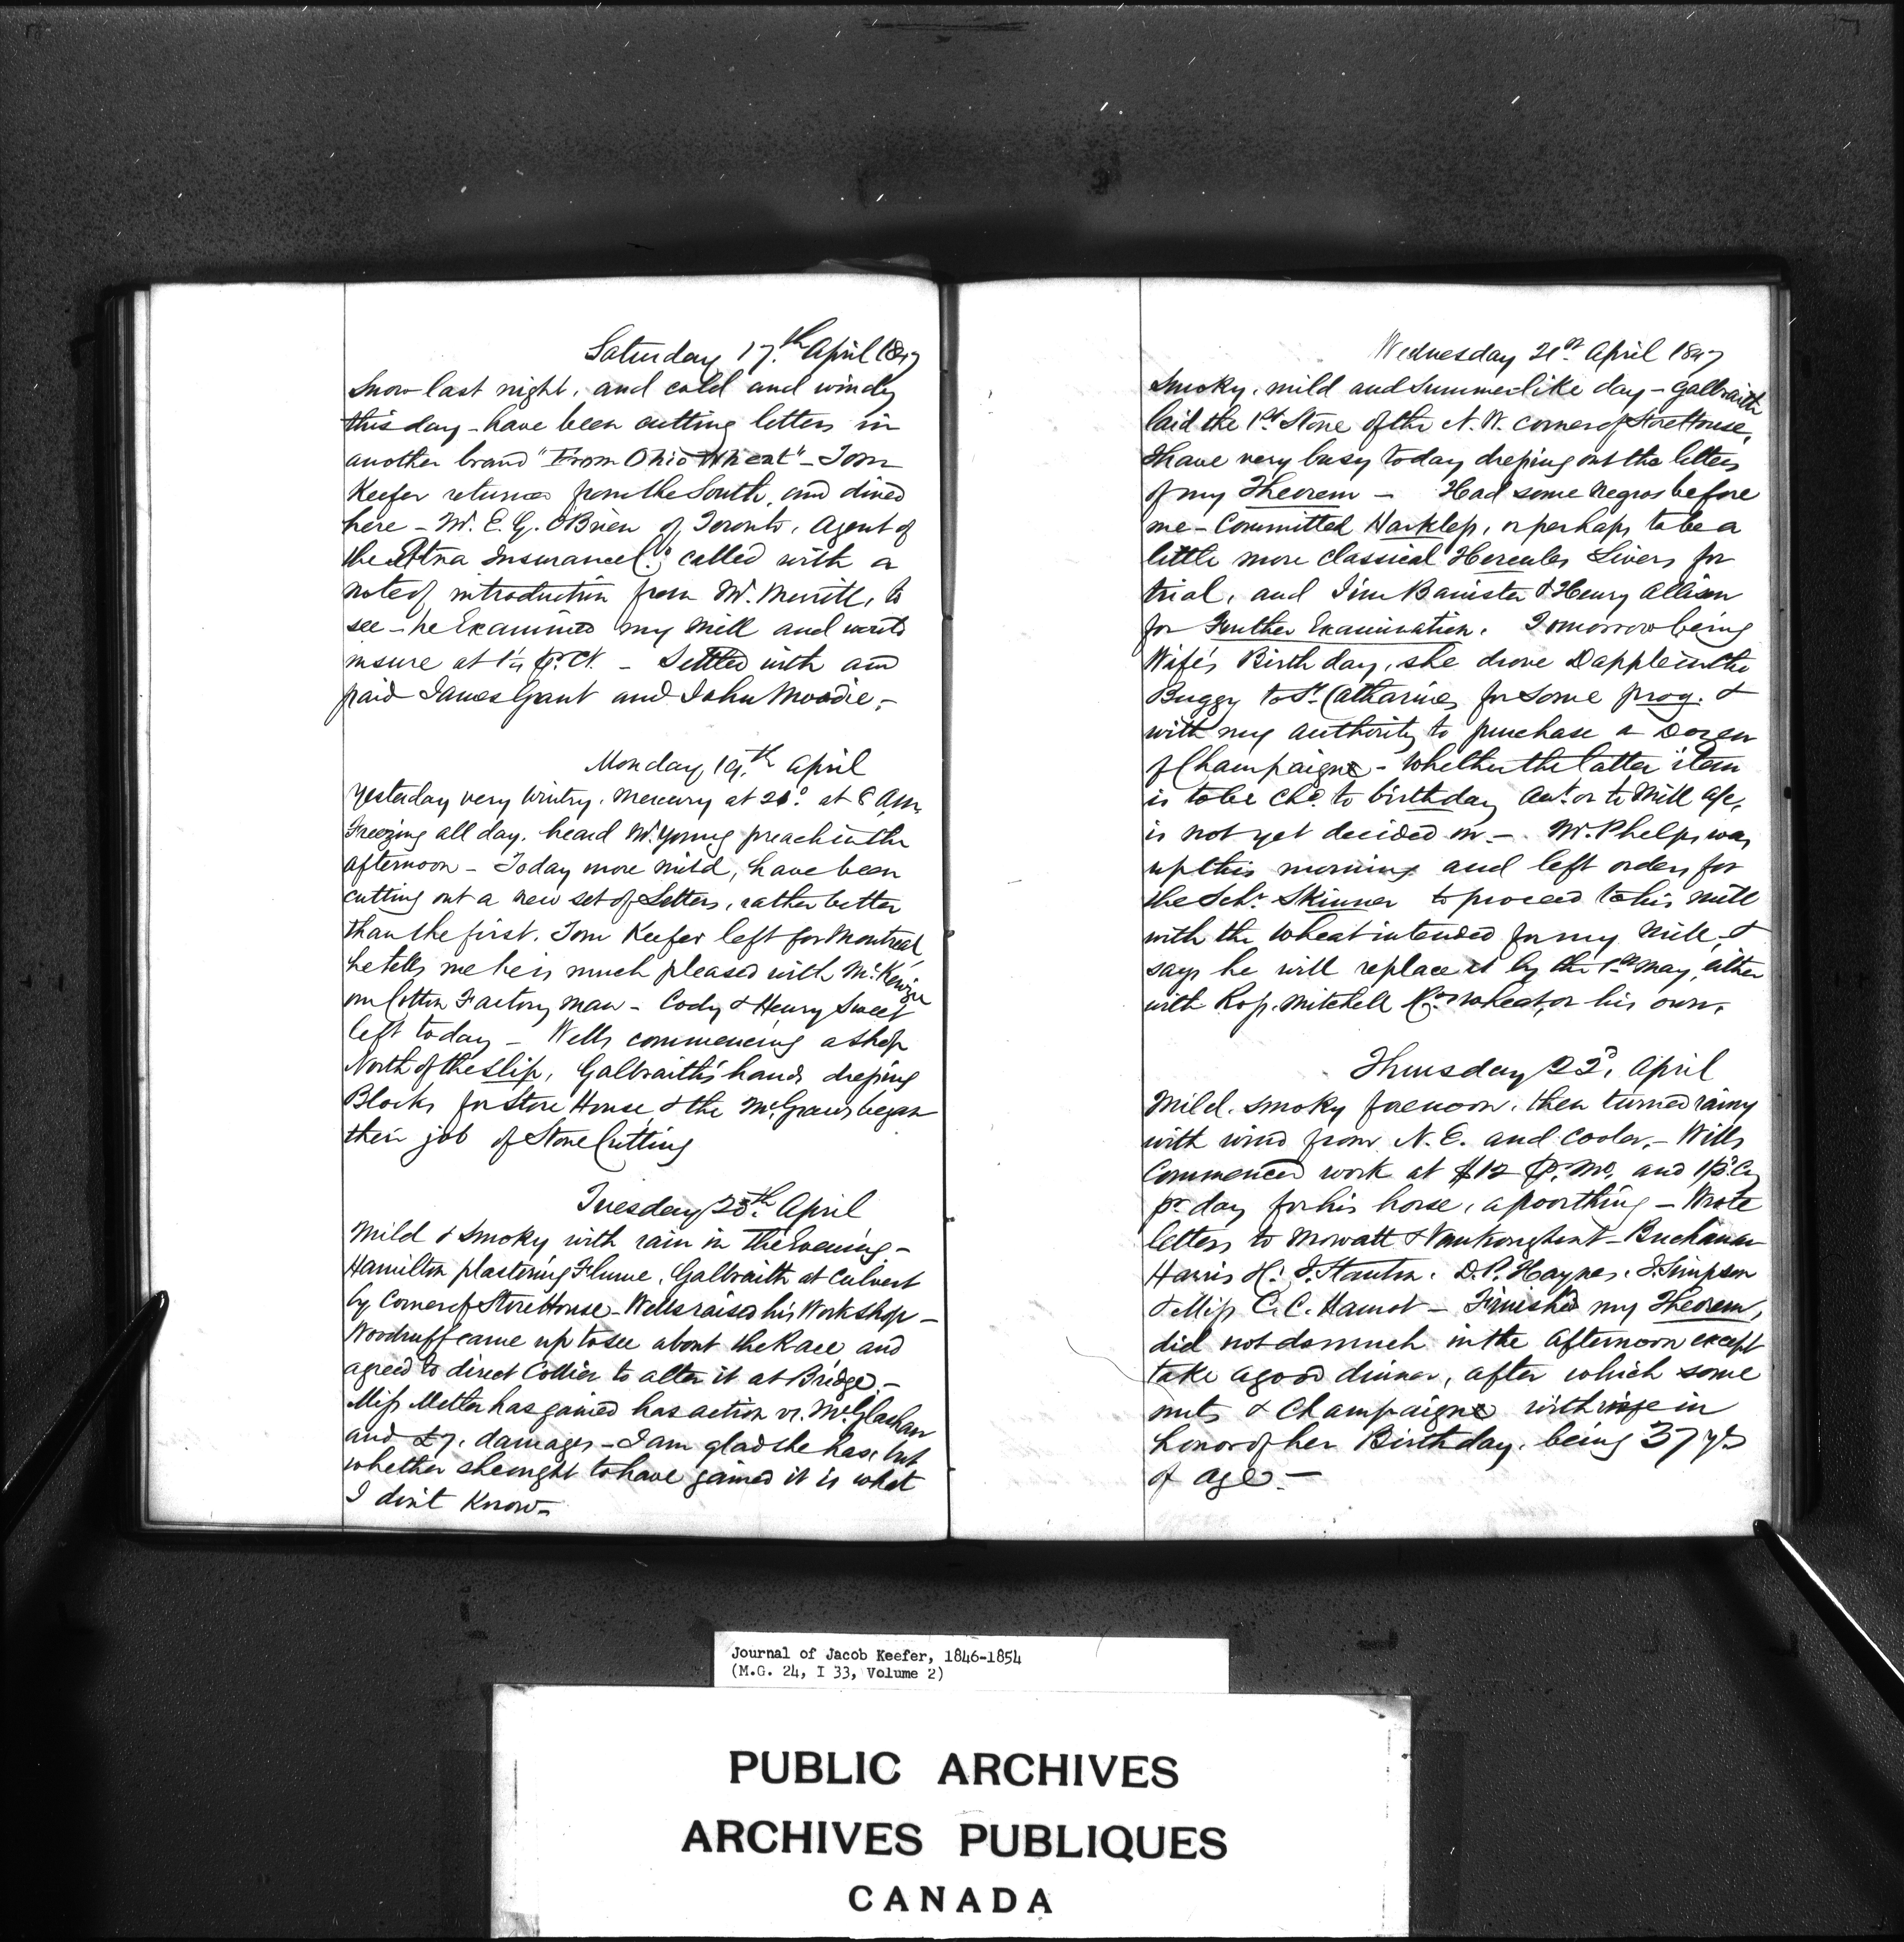 Saturday 17th April 1847
Snow last night, and cold and windy
this day - have been cutting letters in
another brand "From Ohio Wheat" - Tom
Keefer returned from the South, and dined
here - Mr. E. G. O'Brien of Toronto, Agent of
the Etna Insurance Co. called with a
note of introduction from Mr. Merritt, to
see - he Examined my Mill and wd
insure at 1¼ P. Ct. - Settled with and
paid James Grant and John Moodie, -
Monday, 19th April
Yesterday very Wintry. Mercury at 20° at 8 A.M.
Freezing all day. heard Mr. Young preach in the
afternoon - Today more mild, have been
cutting out a new set of Letters, rather better
than the first. Tom Keefer left for Montreal
he tells me he is much pleased with McKenzie
our Cotton Factory man - Cody & Henry Sweet
left today - Wells commencing a shop
North of the slip, Galbraith's hands dressing
Blocks for Store House & the McGraws began
their job of Stone Cutting
Tuesday 20th April
Mild & smoky with rain in the Evening -
Hamilton plastering Flume, Galbraith at Culvert
by Corner of Store House - Wells raised his Workshop -
Woodruff came up to see about the Race and
agreed to direct Collier to alter it at Bridge -
Miss Metler has gained has action vs. McGlashan
and £7. damages - I am glad she has, but
whether she ought to have gained it is what
I don't know -
Wednesday 21st April 1847
Smoky, mild and Summerlike day - Galbraith
laid the 1st Stone of the N.W. corner of Store House,
I have very busy today dressing out the letters
of my Theorem - Had some Negros before
me - Committed Harkless, or perhaps to be a
little more classical Hercules Sivers for
trial, and Jim Banister & Henry Allison
for Further Examination. Tomorrow being
Wife's Birth day, she drove Dapple in the
Buggy to St. Catharines for some prog. &
with my authority to purchase a Dozen
of Champaigne - Whether the latter item
is to be chd. to birthday Acct. or to Mill a/c,
is not yet decided on - Mr. Phelps was
up this morning and left orders for
the Schr. Skinner to proceed to his mill
with the Wheat intended for my Mill, &
says he will replace it by the 1st May, either
with Ross, Mitchell & Cos wheat, or his own.
Thursday 22d, April
Mild, smoky forenoon, then turned rainy
with wind from N. E. and cooler, - Wills
Commenced work at $12 P. Mo. and 1/3 Cy
pr day for his horse, a poor thing - Wrote
letters to Mowatt & Vankoughnet - Buchanan
Harris H. J. Stanton. D. P. Haynes. J. Simpson
& Miss C. C. Hamot - Finished my Theorem,
did not do much in the afternoon except
take a good dinner, after which some
nuts & Champaigne with wife in
honor of her Birthday, being 37 yrs
of age. -
Journal of Jacob Keefer, 1846-1854
(M.G. 24, I 33, Volume 2)
PUBLIC ARCHIVES
ARCHIVES PUBLIQUES
CANADA